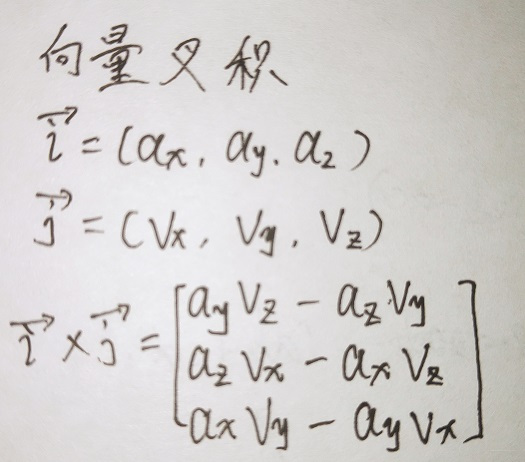 向量叉积
i⃗ = (aₓ, a_y, a_z)
j⃗ = (Vₓ, V_y, V_z)
i⃗ × j⃗ = [a_y V_z − a_z V_y
a_z Vₓ − aₓ V_z
aₓ V_y − a_y Vₓ]